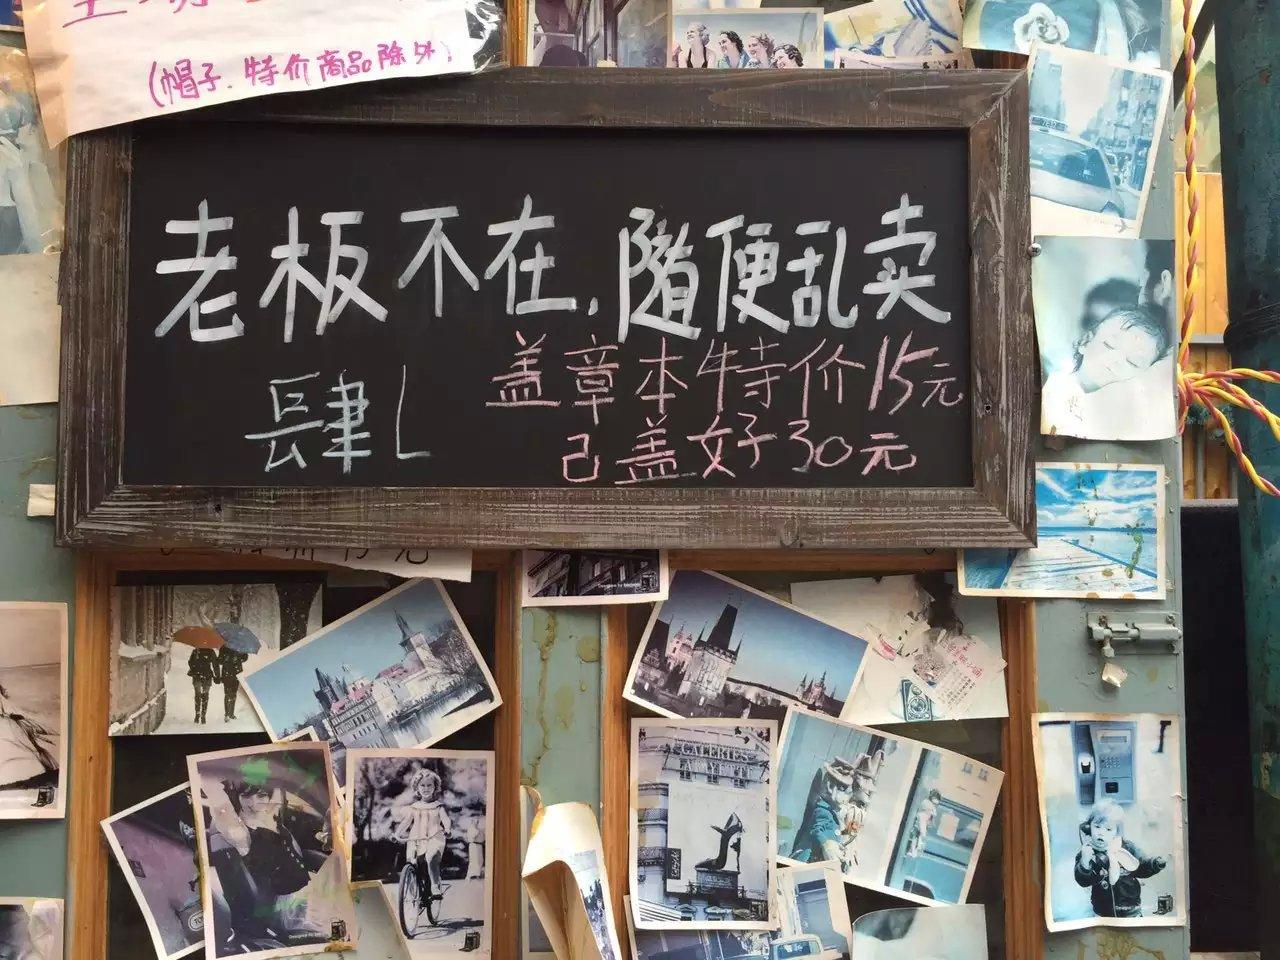 (帽子.特价商品除外)
老板不在,随便乱卖
盖章本特价15元
己盖好30元